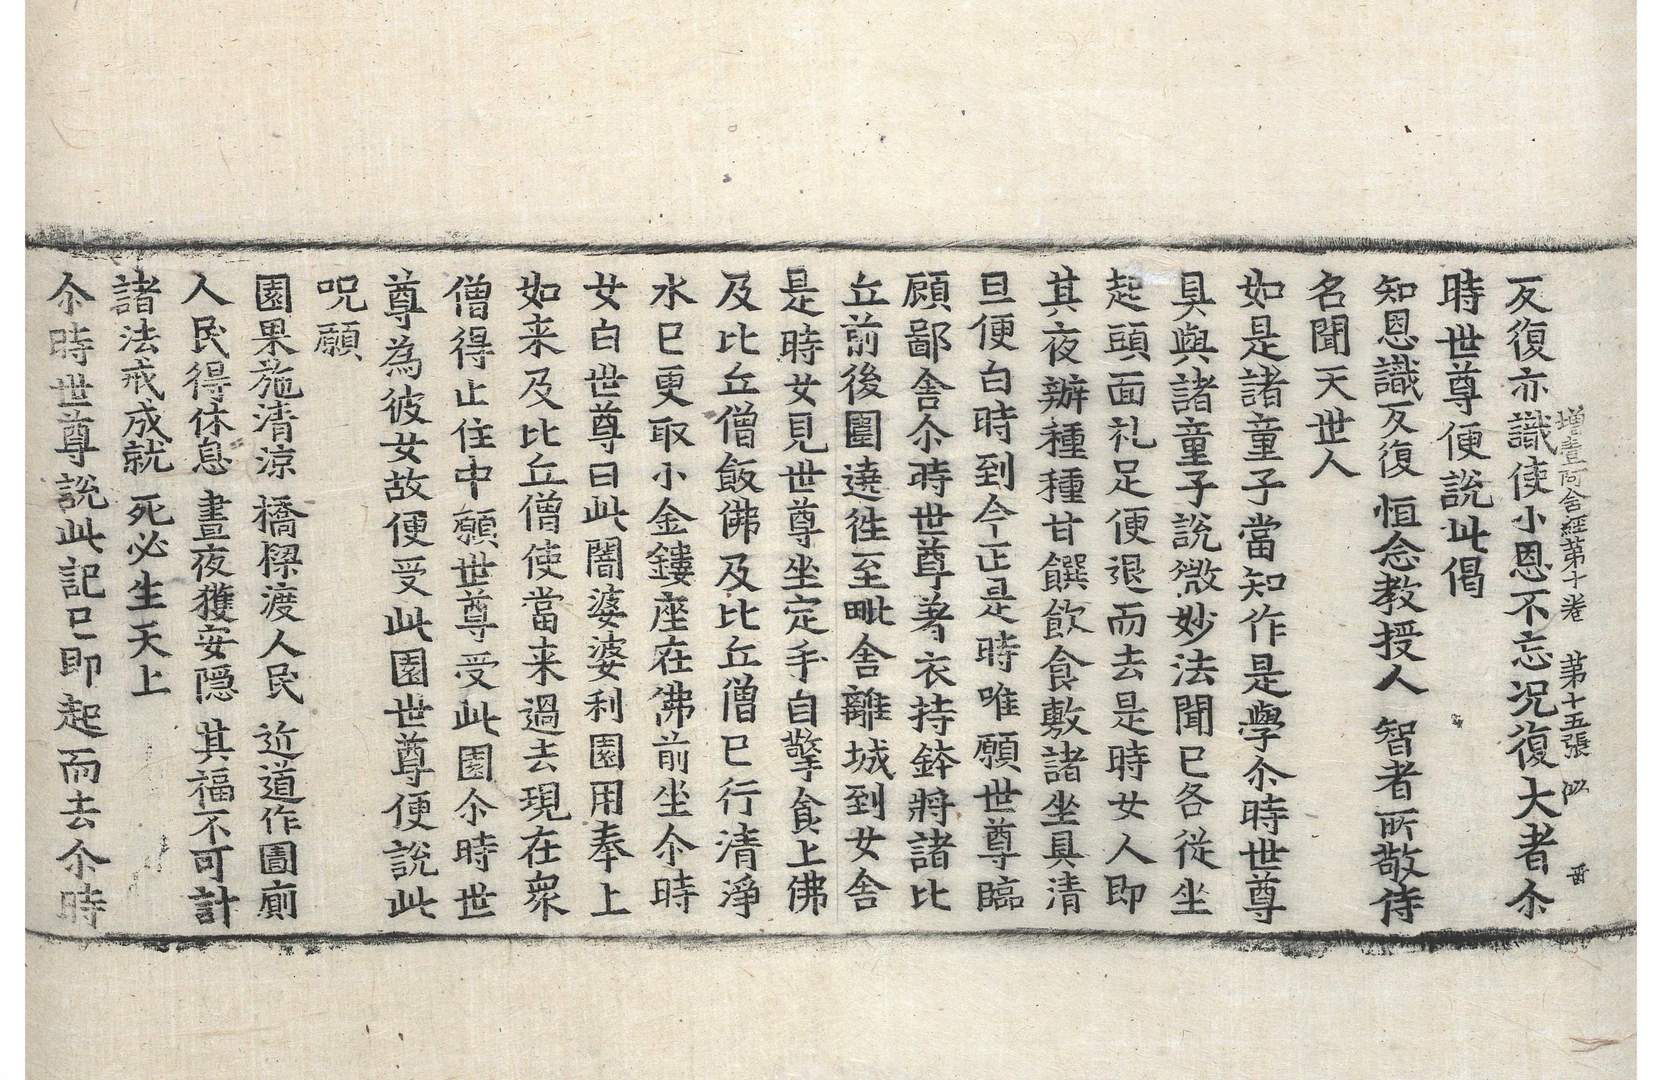 增壹阿含經第十卷　第十五張　似
反復亦識使小恩不忘况復大者尒
時世尊便説此偈
知恩識反復　恒念教授人　智者所敬侍
名聞天世人
如是諸童子當知作是學尒時世尊
具與諸童子説微妙法聞已各從坐
起頭面礼足便退而去是時女人即
其夜辦種種甘饌飲食敷諸坐具清
旦便白時到今正是時唯願世尊臨
顧鄙舍尒時世尊著衣持鉢將諸比
丘前後圍遶徃至毗舍離城到女舍
是時女見世尊坐定手自擎食上佛
及比丘僧飯佛及比丘僧已行清淨
水已更取小金鏤座在佛前坐尒時
女白世尊曰此闍婆婆利園用奉上
如来及比丘僧使當来過去現在衆
僧得止住中願世尊受此園尒時世
尊為彼女故便受此園世尊便説此
呪願
園果施清涼　橋樑渡人民　近道作圊廁
人民得休息　晝夜獲安隱　其福不可計
諸法戒成就　死必生天上
尒時世尊説此記已即起而去尒時